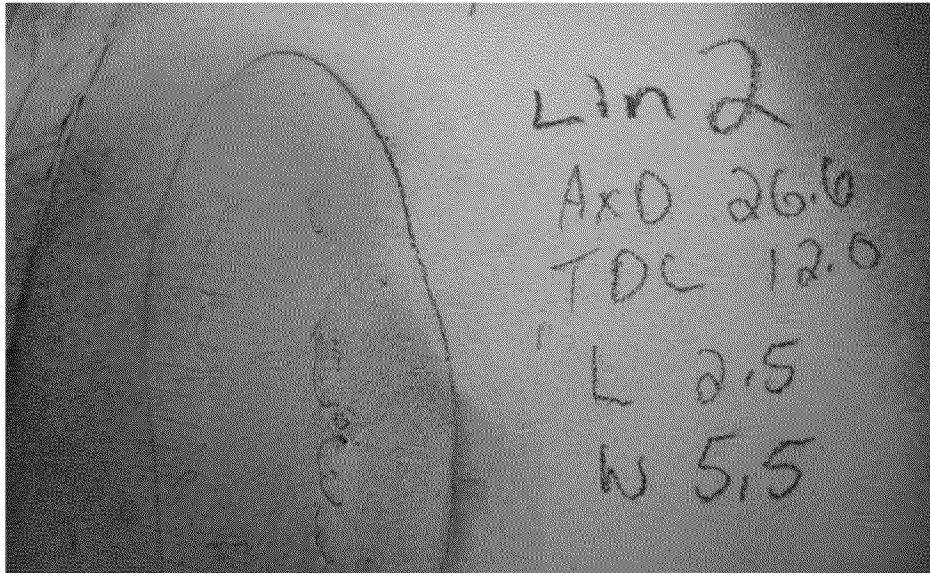 Lin 2
AxD 26.6
TDC 12.0
L 2.5
W 5.5